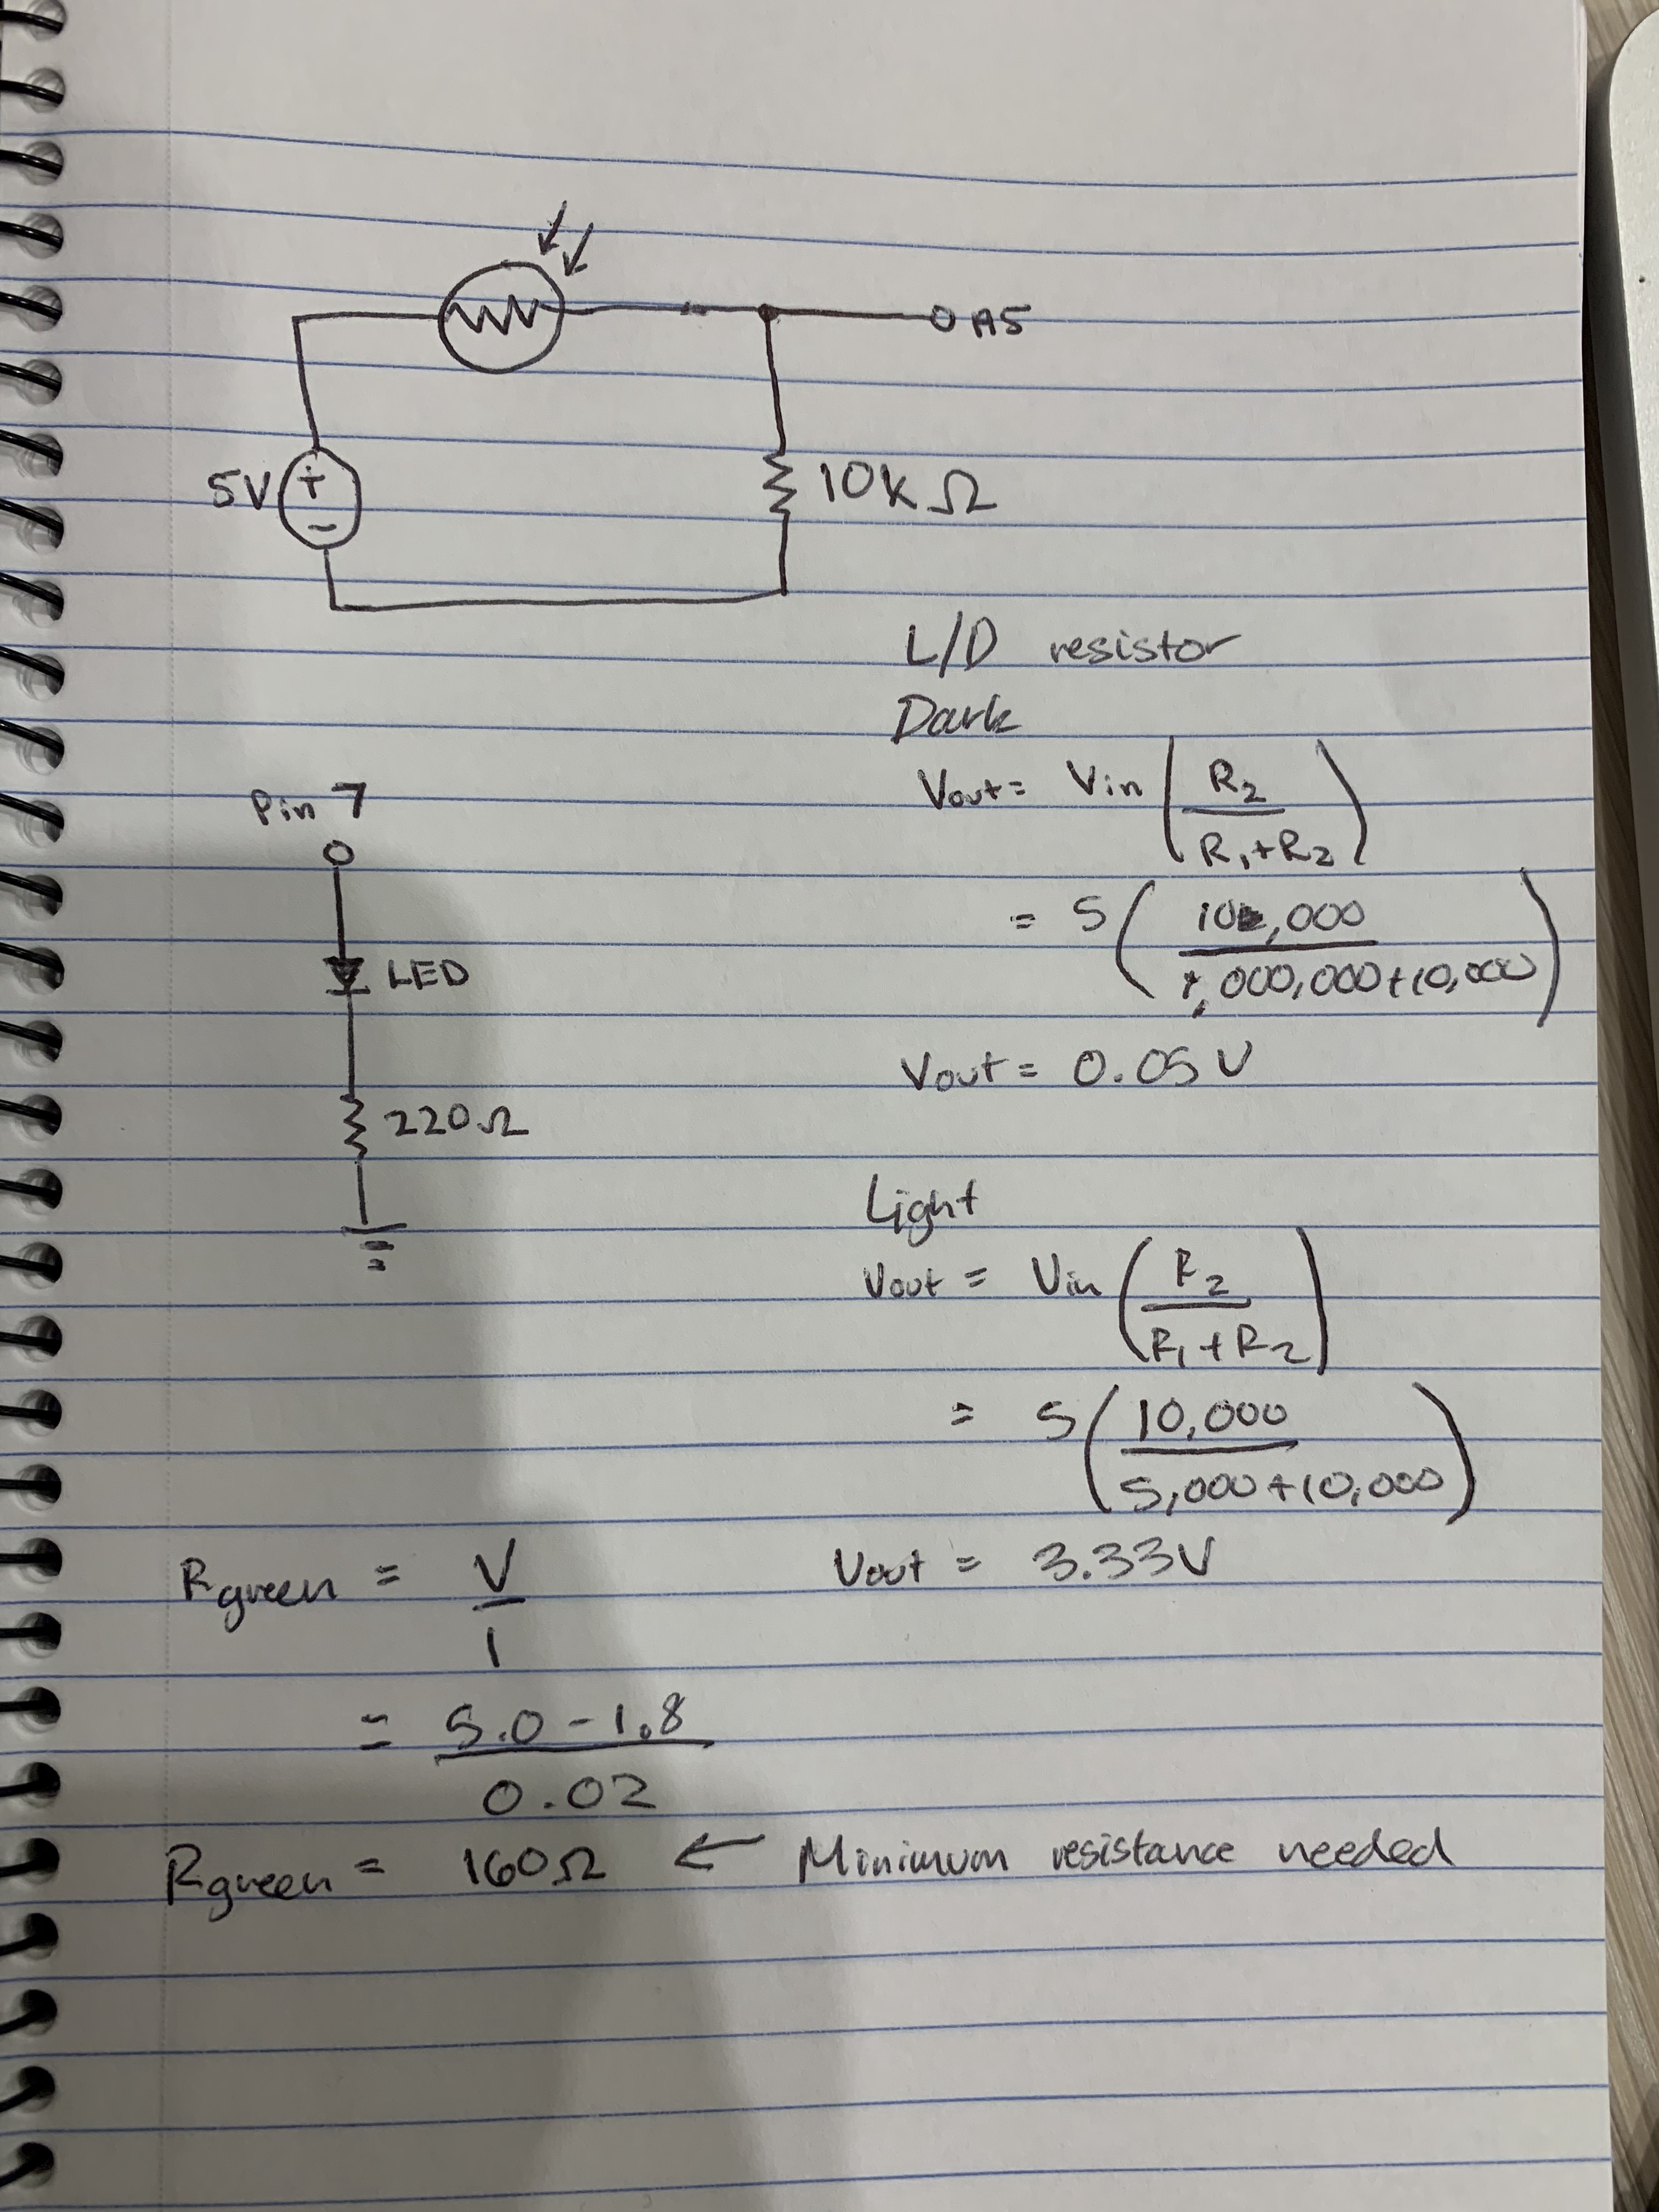 A5
5V + -
10k Ω
L/D resistor
Dark
Pin 7
Vout = Vin (R2 / R1+R2)
= 5 (10,000 / 1,000,000+10,000)
LED
Vout = 0.05 V
220Ω
Light
Vout = Vin (R2 / R1+R2)
= 5 (10,000 / 5,000+10,000)
Vout = 3.33V
Rgreen = V / I
= 5.0-1.8 / 0.02
Rgreen = 160Ω ← Minimum resistance needed